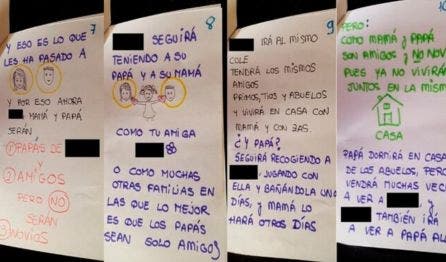 7
Y ESO ES LO QUE
LES HA PASADO A
Y POR ESO AHORA
, MAMÁ Y PAPÁ
SERÁN
① PAPÁS DE
Y
② AMIGOS
PERO NO
SERÁN
③ NOVIOS
8
SEGUIRÁ
TENIENDO A SU
PAPÁ Y A SU MAMÁ
COMO TU AMIGA
O COMO MUCHAS
OTRAS FAMILIAS EN
LAS QUE LO MEJOR
ES QUE LOS PAPÁS
SEAN SOLO AMIGOS
9
IRÁ AL MISMO
COLE
TENDRÁ LOS MISMOS
AMIGOS
PRIMOS, TIOS Y ABUELOS
Y VIVIRÁ EN CASA CON
MAMÁ Y CON
¿Y PAPÁ?
SEGUIRÁ RECOGIENDO A
, JUGANDO CON
ELLA Y BAÑÁNDOLA UNOS
DÍAS, Y MAMÁ LO
HARÁ OTROS DÍAS
10
PERO:
COMO MAMÁ Y PAPÁ
SON AMIGOS Y NO NOV
PUES YA NO VIVIRÁN
JUNTOS EN LA MISM
CASA
PAPÁ DORMIRÁ EN CASA
DE LOS ABUELOS, PERO
VENDRÁ MUCHAS VEC
A VER A , Y
TAMBIÉN IRÁ
A VER A PAPÁ AL